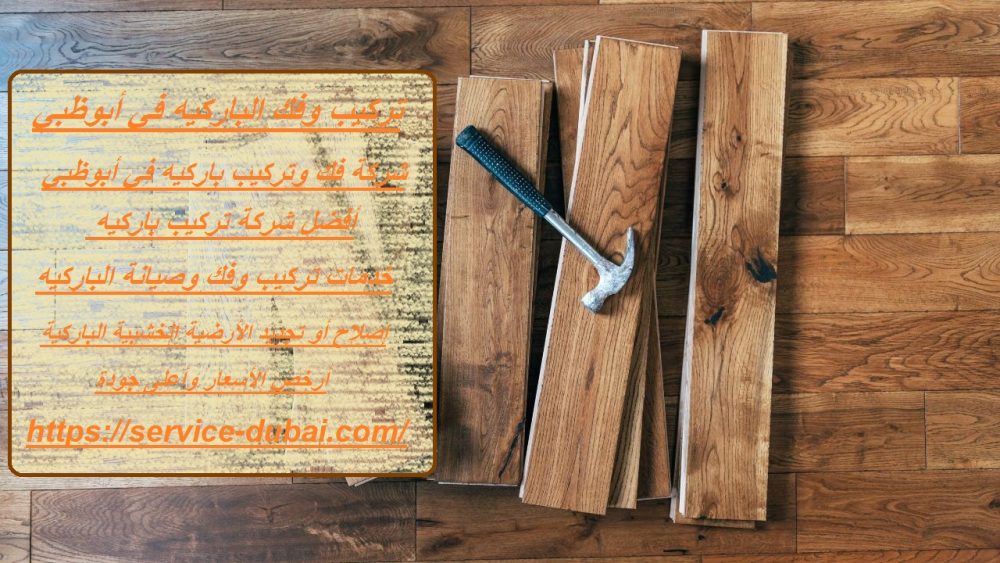 تركيب وفك الباركيه في أبوظبي
شركة فك وتركيب باركيه في أبوظبي
أفضل شركة تركيب باركيه
خدمات تركيب وفك وصيانة الباركيه
إصلاح أو تجديد الأرضية الخشبية الباركية
أرخص الأسعار وأعلى جودة
https://service-dubai.com/